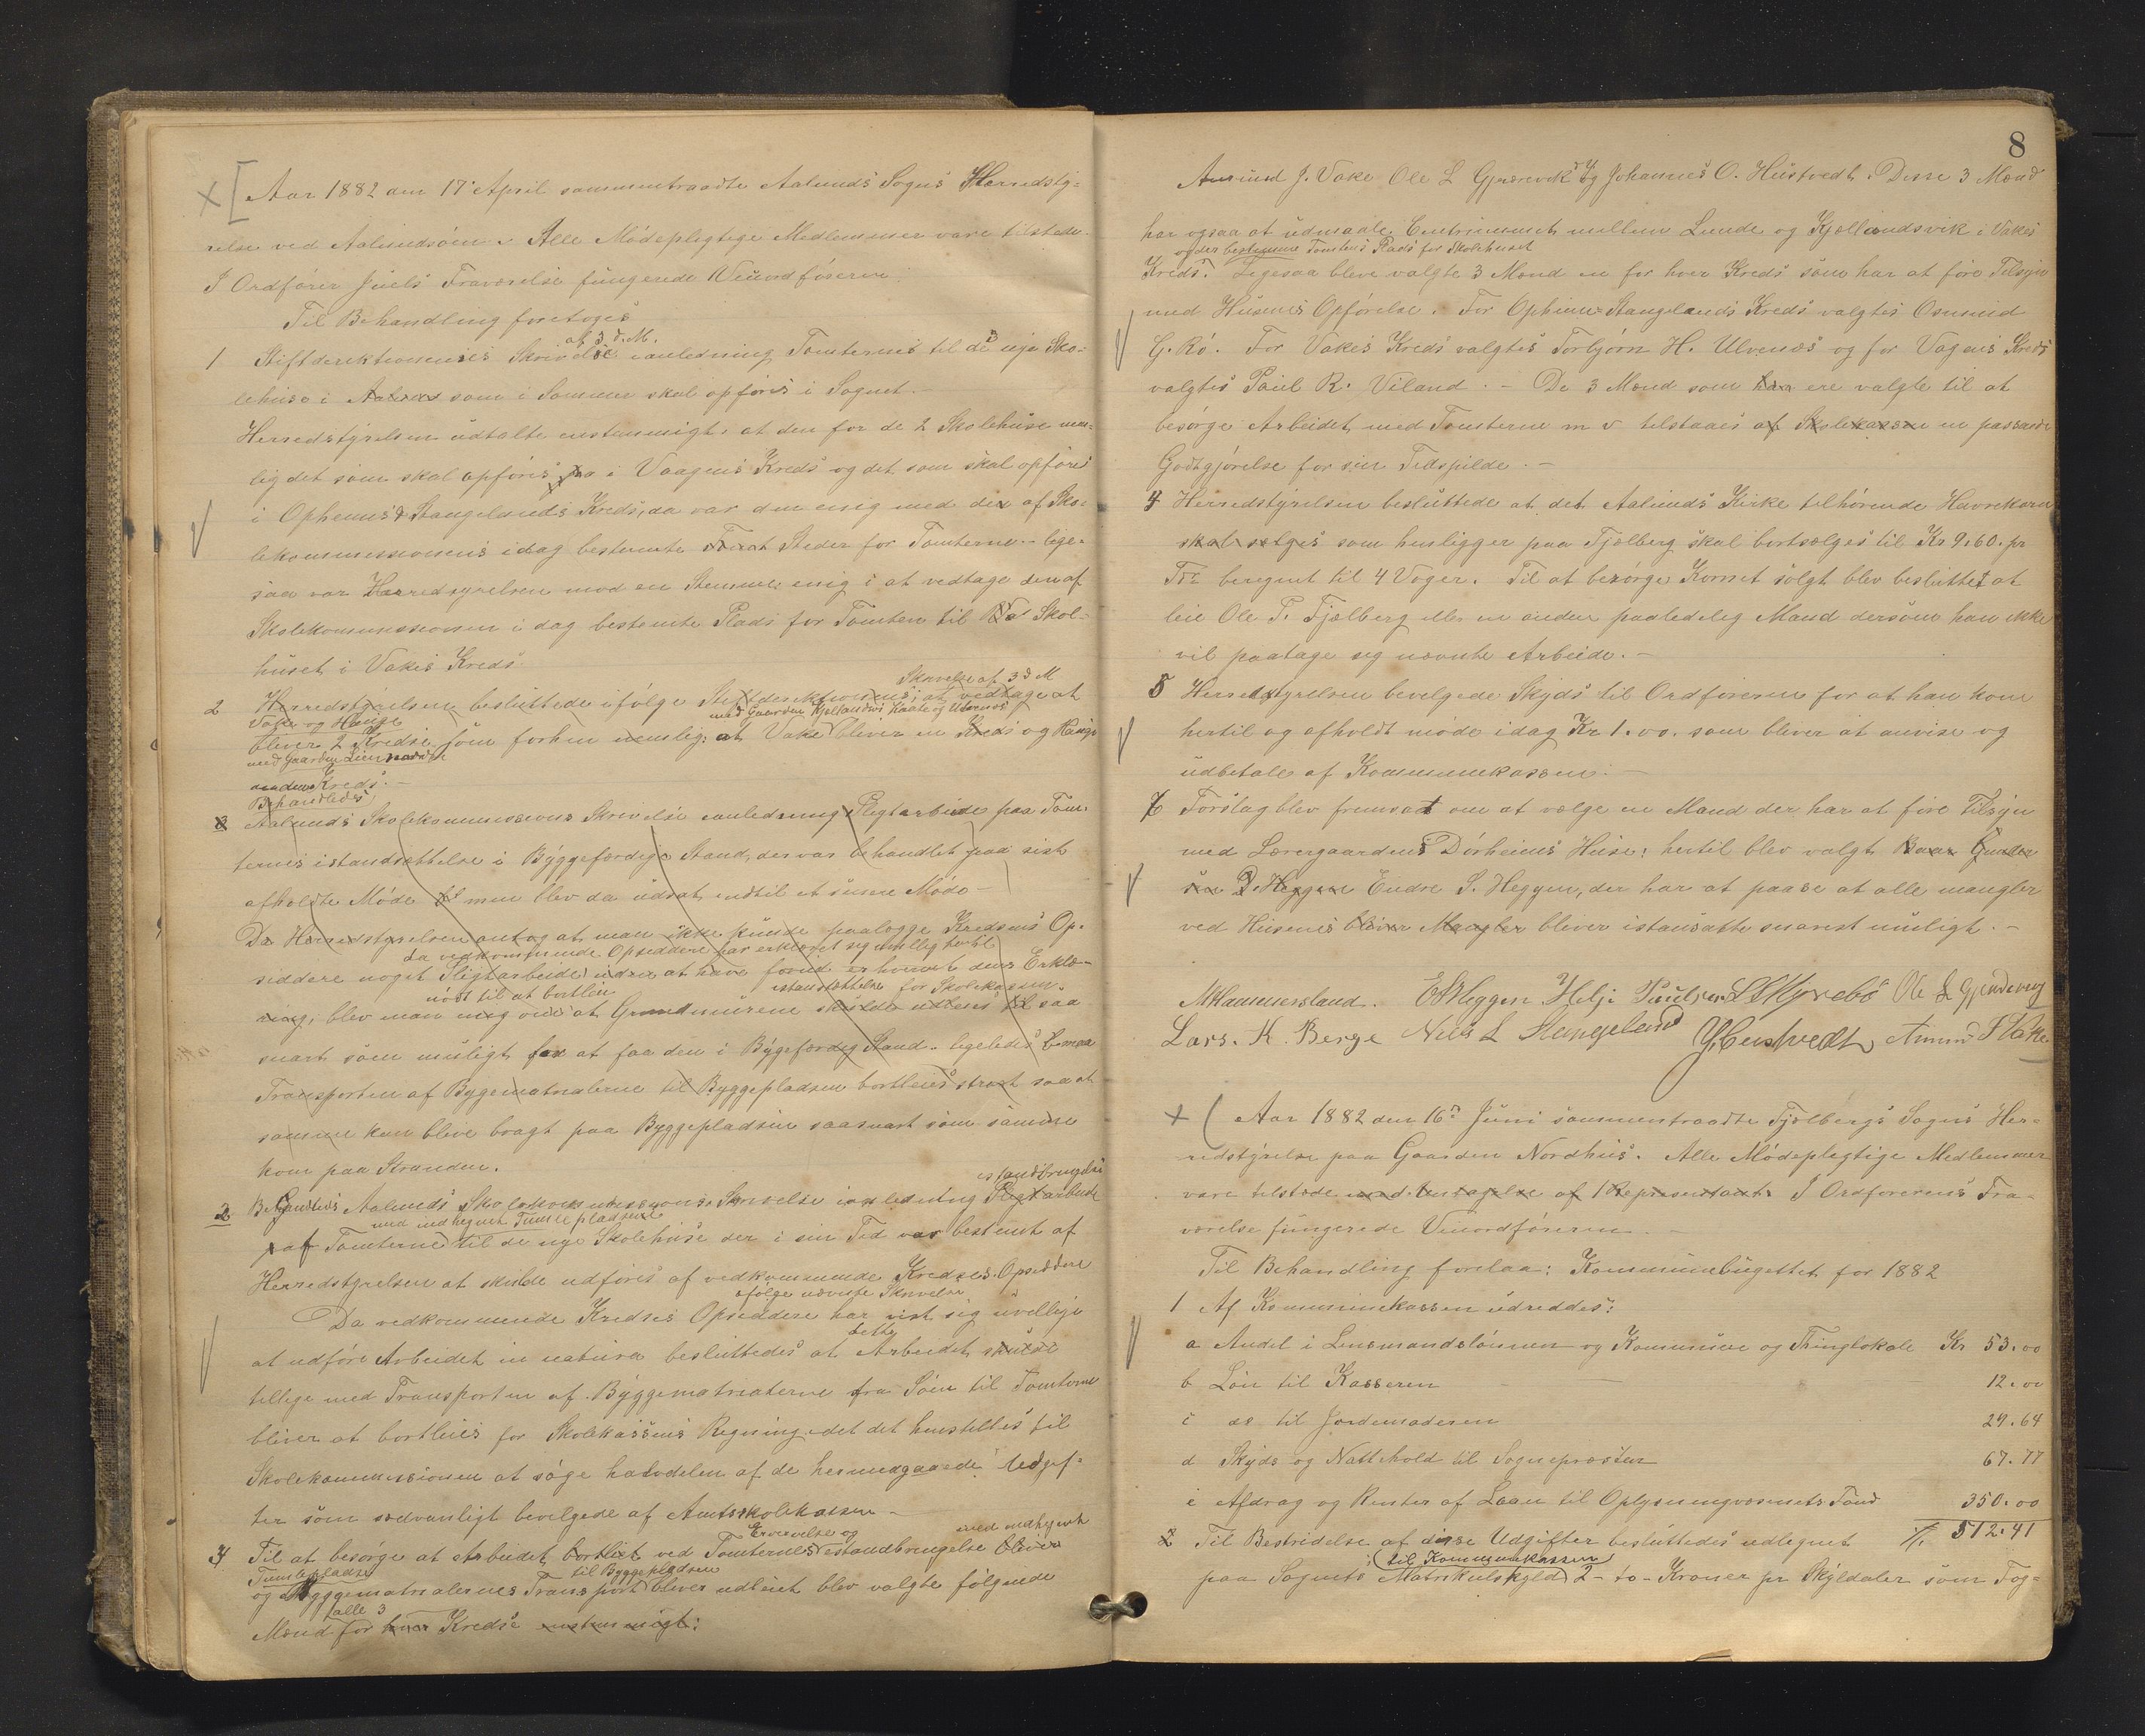 Aar 1882 den 17 April sammentraadte Aalunds Sogns Herredsty-
relse ved Aalundsøen. Alle Mødepligtige Medlemmer vare tilstede.
I Ordfører Juels Fraværelse fungerede Viceordføreren.
Til Behandling foretoges
af 3 d. M.
1 Stiftdirektionens Skrivelse i anledning Tomternes til de 3 nye Sko-
lehuse i som i Sommer skal opføres i Sognet.
Herredstyrelsen udtalte enstemmigt, at den for de 2 Skolehuse nem-
lig det som skal opføres i Vaagens Kreds og det som skal opføres
i Ophems & Stangelands Kreds, da var den enig med de af Sko-
lekommissionens idag bestemte Steder for Tomterne - lige-
saa var Herredsyrelsen mod en Stemme enig i at vedtage den af
Skolekommissionen i dag bestemte Plads for Tomten til Skol-
huset i Vakes Kreds
Skrivelse af 3 d M
2 Herredstyrelsen besluttede ifølge Stiftdirektionens at vedtage at
Vake og Hauge
med Gaarden Kjellandsvik Kaale og Ulvenes
bliver 2 Kredse som forhen nemlig: at Vake bliver en Kreds og Hauge
med Gaarden Lien
anden Kreds.-
Behandledes
3 Aalunds Skolekommissions Skrivelse i anledning Pligtarbeide paa Tom-
ternes istandsættelse i Byggefærdig Stand, der var behandlet paa sist
afholdte Møde men blev da udsat indtil et senere Møde -
Da Herredstyrelsen antog at man ikke kunde paalægge Kredsens Op-
da vedkommende Opsiddere har erklæret sig uvillig hertil
siddere noget Pligtarbeide uden at have forud erhvervet deres Erklæ-
nødt til at bortleie
istandsættelse for Skolekassen
ring, blev man enig om at Grundmurene skulde udleies saa
snart som muligt for at faa den i Bygefærdig Stand. ligeledes
Transporten af Bygematrialerne til Byggepladsen bortleies strax saa at
samme kan blive bragt paa Byggepladsen saasnart som samme
kom paa Stranden.
istandbringelse
2 Behandledes Aalunds Skolekommissions Skrivelse i anledning Pligtarbeide
med indhegnet Tumlepladsene
af Tomterne til de nye Skolehuse der i sin Tid var bestemt af
Herredstyrelsen at skulde udføres af vedkommende Kredses Opsiddere
ifølge nævnte Skrivelse
Da vedkommende Kredses Opsiddere har vist sig uvillige
dette
at udføre Arbeidet in natura besluttedes at Arbeidet skulde
tillige med Transporten af Byggematriaterne fra Søen til Tomterne
bliver at bortleies for Skolekassens Regning idet det henstilles til
Skolekommissionen at søge halvdelen af de hermedgaaende Udgif-
ter som sædvanligt bevilgede af Amtsskolekassen -
Ervervelse og
med indhegnet
3 Til at besørge at Arbeidet bortliet ved Tomternes istandbringelse bliver
Tumlepladse
til Byggepladsen
og Byggematrialernes Transport bliver udleiet blev valgte følgende
alle 3
Mænd for hver Kredse enstemmigt:
8
Amund J. Vake Ole L Gjerevik og Johannes O. Hustvedt. Disse 3 Mænd
har ogsaa at udmaale Centrummet mellem Lunde og Kjellandsvik i Vakes
og der bestemme Tomtens Plads for Skolehuset
Kreds. Ligesaa bleve valgte 3 Mænd en for hver Kreds som har at føre Tilsyn
med Husenes Opførelse. For Ophem-Stangelands Kreds valgtes Osmund
G. Rø. For Vakes Kreds valgtes Torbjørn H. Ulvenæs og for Vagens Kreds
valgtes Paul R. Viland. - De 3 Mænd som ere valgte til at
besørge Arbeidet med Tomterne m v tilstaaes af Skolekassen en passende
Godtgjørelse for sin Tidspilde. -
4 Herredstyrelsen besluttede at det Aalunds Kirke tilhørende Havrekorn
skal sælges som henligger paa Fjelberg skal bortsælges til Kr 9.60. pr
Tde beregnet til 4 Voger. Til at besørge Kornet solgt blev besluttet at
leie Ole P. Fjelberg eller en anden paalidelig Mand dersom han ikke
vil paatage sig nævnte Arbeide. -
5 Herredstyrelsen bevilgede Skyds til Ordføreren for at han kom
hertil og afholdt møde idag Kr 1.00. som bliver at anvise og
udbetale af Kommunekassen. -
6 Forslag blev fremsat om at vælge en Mand der har at føre Tilsyn
med Lærergaardens Dørheims Huse: hertil blev valgt
Endre S. Heggen, der har at paase at alle mangler
ved Husenes bliver Mangler bliver istansatte snarest muligt. -
M Hammersland. E S Heggen Helje Poulsen Ole L Gjerdevig
Lars. H. Berge Nels L Stangeland J Hustvedt Amund J Vake
Aar 1882 den 16de Juni sammentraadte Fjelbergs Sogns Her-
redstyrelse paa Gaarden Nordhus. Alle Mødepligtige Medlemmer
vare tilstede med Undtagelse af 1 Representant. I Ordførerens Fra-
værelse fungerede Viceordføreren. -
Til Behandling forelaa: Kommunebugettet for 1882
1 Af Kommunekassen udreddes:
a Andel i Lensmandslønnen og Kommune og Thinglokale Kr 53.00
b Løn til Kasseren 12.00
c do til Jordemoderen 29.64
d Skyds og Nattehold til Sognepræsten 67.77
e Afdrag og Renter af Laan til Oplysningvæsenets Fond 350.00
2 Til Bestridelse af disse Udgifter besluttedes udlignet 512.41
til Kommunekassen
paa Sognets Matrikulskyld 2 - to - Kroner pr Skyldaler som Fog-